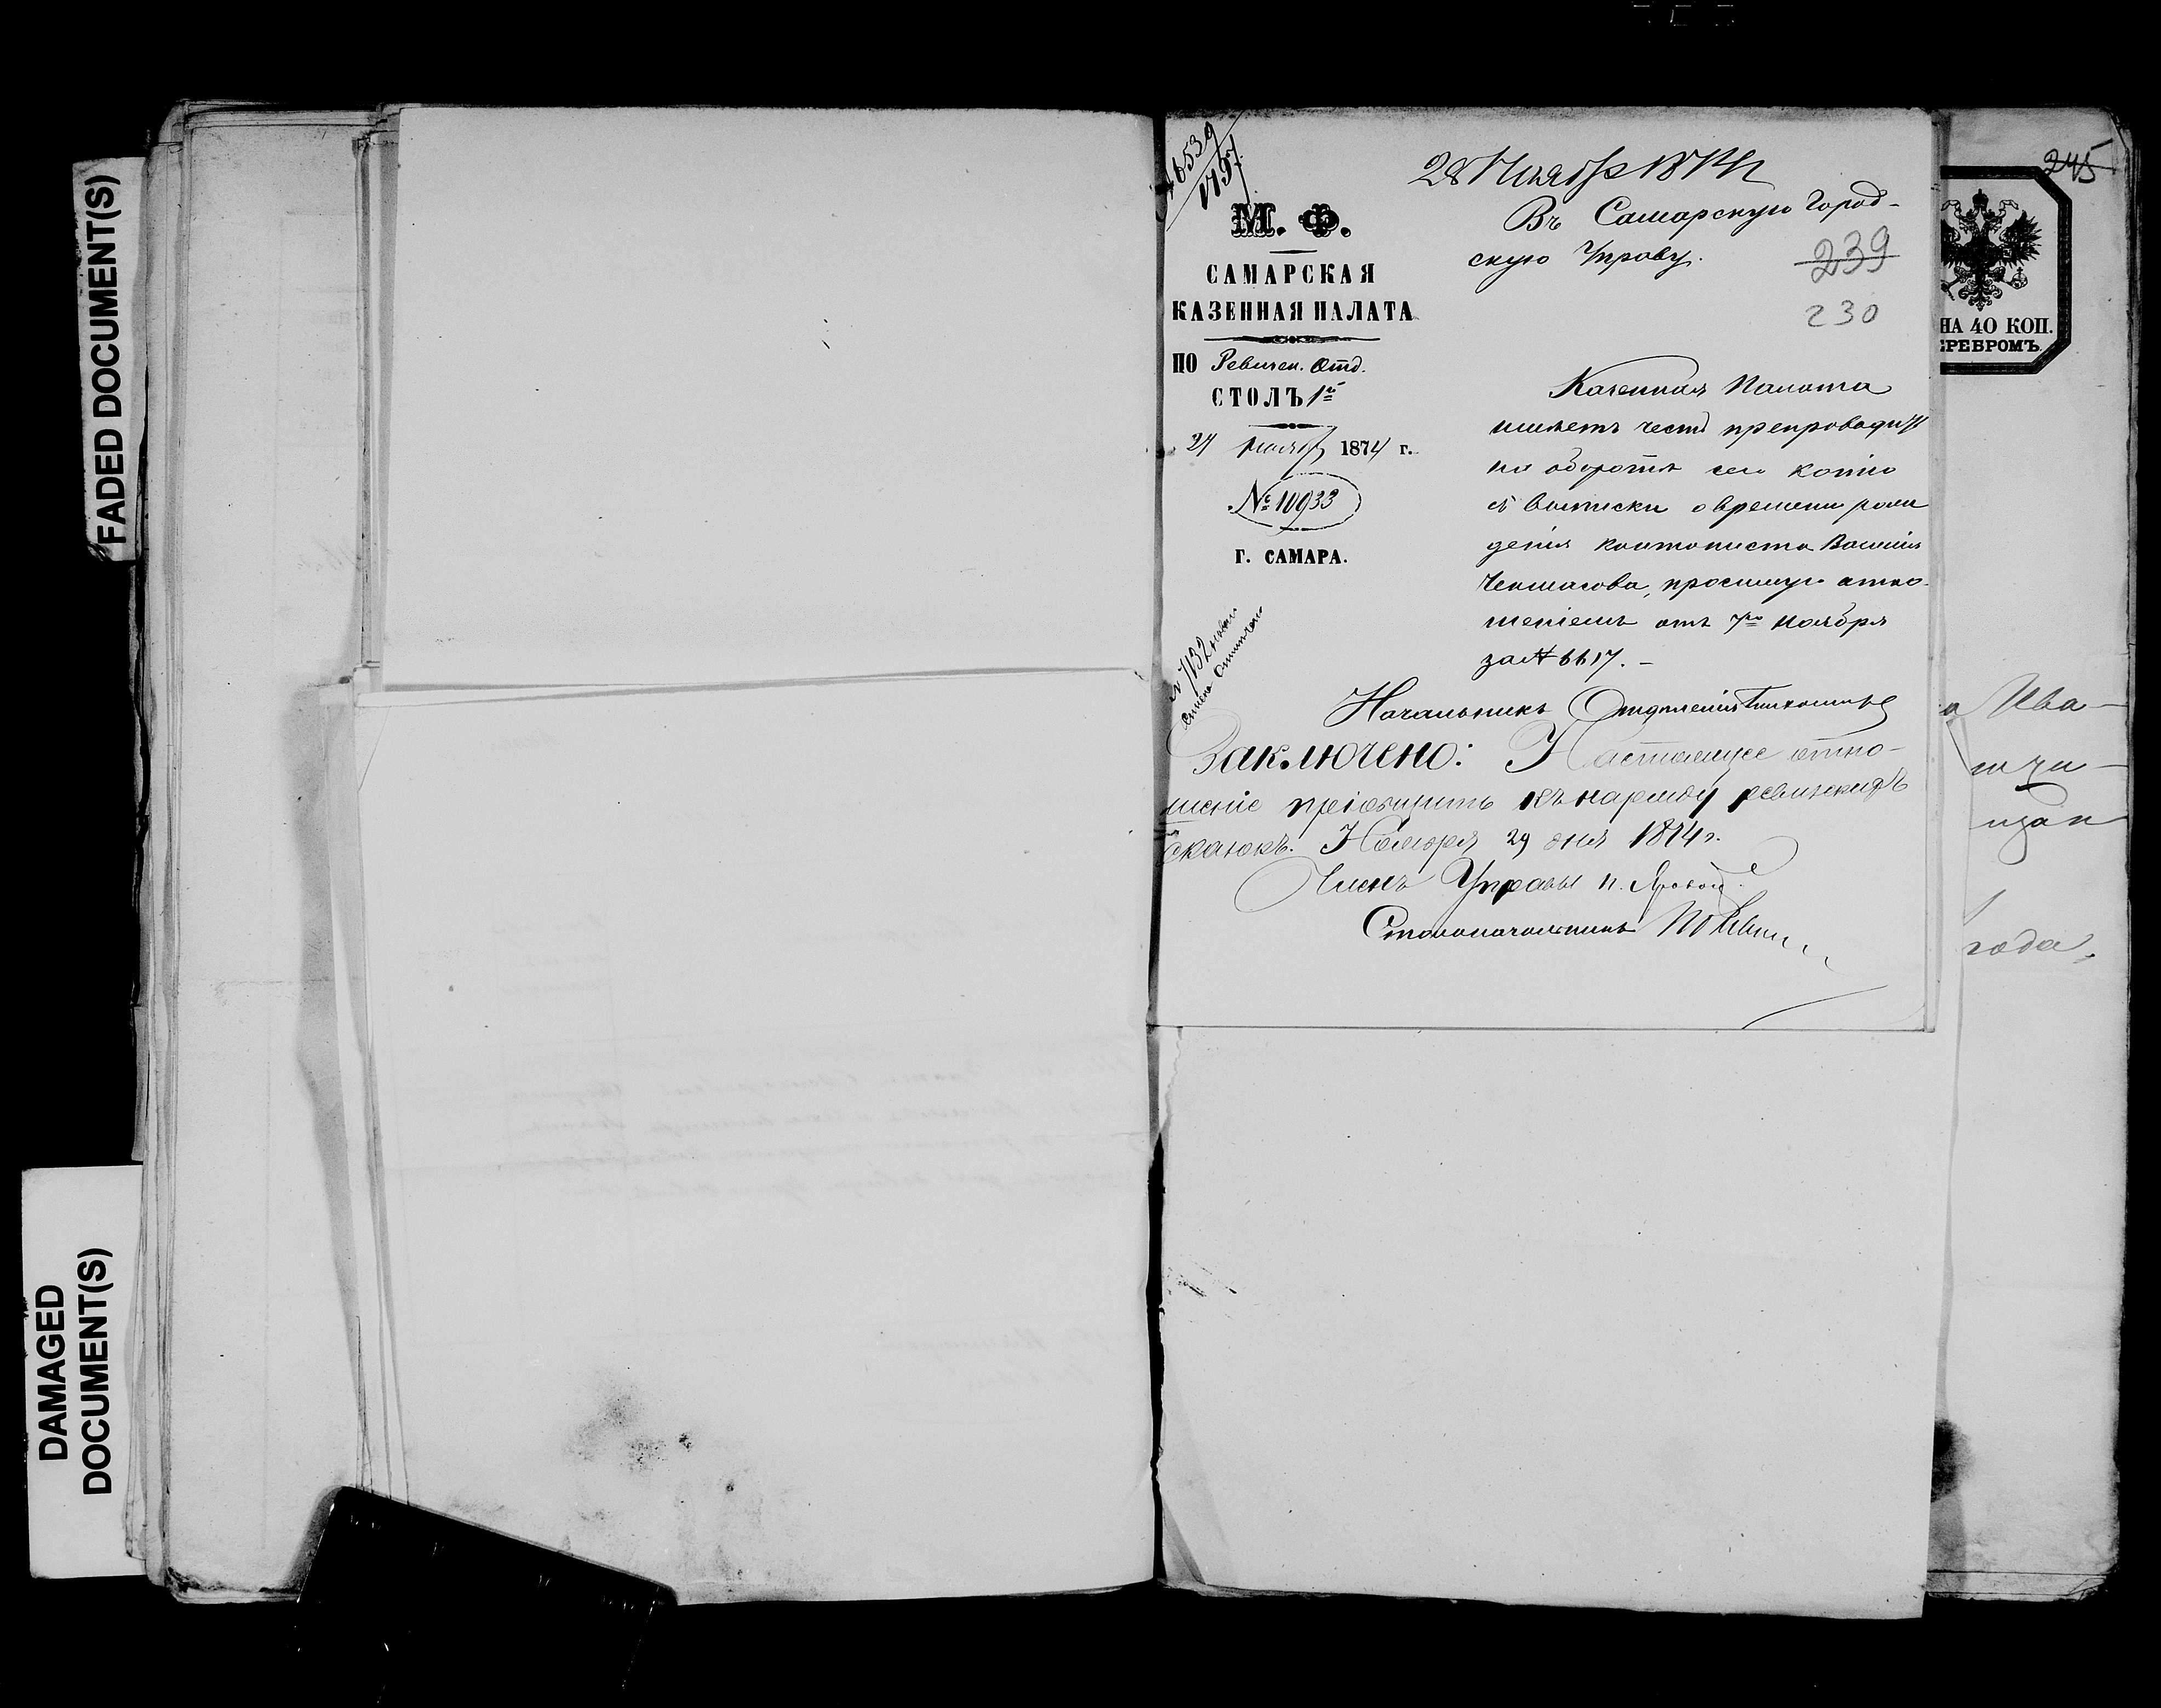 FADED DOCUMENT(S)
DAMAGED
DOCUMENT(S)
28 Ноября 1874
М. Ф.
САМАРСКАЯ
КАЗЕННАЯ ПАЛАТА
ПО Ревизск. Отд.
СТОЛЪ 1й
24 ноября 1874 г.
№ 10933
Г. САМАРА.
Въ Самарскую Город-
скую Управу.
239
230
Казенная Палата
имѣетъ честь препроводить
на оборотѣ сего копію
съ выписки о времени рож
денія кантониста
просимую отно-
шеніемъ отъ 7го ноября
за № 6617. –
Начальникъ Отдѣленія
Заключено: Настоящее отно-
шеніе пріобщить къ наряду ревизскихъ
сказокъ. Ноября 29 дня 1874 г.
Членъ Управы П. Яровой
Столоначальникъ
245
НА 40 КОП.
ЕРЕБРОМЪ.
Ива-
года,